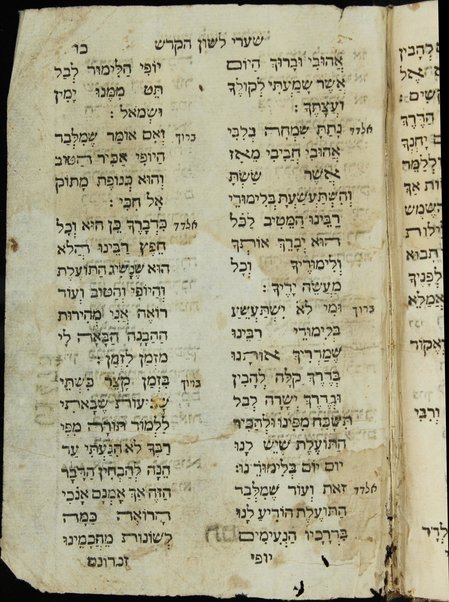 שערי לשון הקדש
כו
אהובי וברוך היום
אשר שמעתי לקולך
ועצתך :
אלדד נתת שמחה בלבי
אהובי חביבי מאז
אשר ששת
והשתעשעת בלימודי
רבינו המטיב לכל
הוא יברך אותך
ולימודיך וכל
מעשה ידיך :
ברוך ומי לא ישתעשע
בלימודי רבינו
שמדריך אותנו
בדרך קלה להבין
ונדרך ישרה לבל
תשכח מפינו ולהבין
התועלת שיש לנו
יום יום בלימודינו :
אלדד זאת ועוד שמלבד
התועלת הודיע לנו
בדרכיו הנעימים
יופי
יופי הלימוד לבל
תט ממנו ימין
ושמאל :
ברוך ואם אומר שמלבד
היופי אכיר הטוב
והוא כנופת מתוק
אל חכי :
אלדד כדברך כן הוא וכל
חפץ רבינו הלא
הוא שנשיג התועלת
והיופי והטוב ועוד
רואה אני מהירות
ההבנה הבאה לי
מזמן לזמן :
ברוך בזמן קצר כשתי
שעות שבאתי
ללמוד תורה מפי
רבך לא הגעתי עד
הנה להבחין הדבר
הזה אך אמנם אנכי
הרואה כמה
לשונות מחכמינו
זכרונם